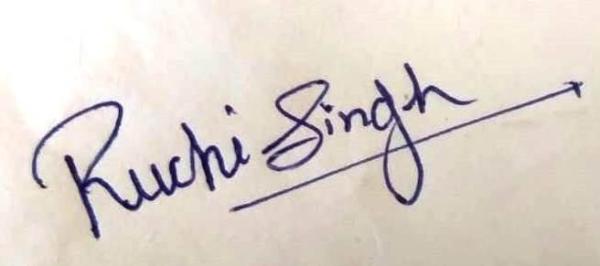 Ruchi Singh